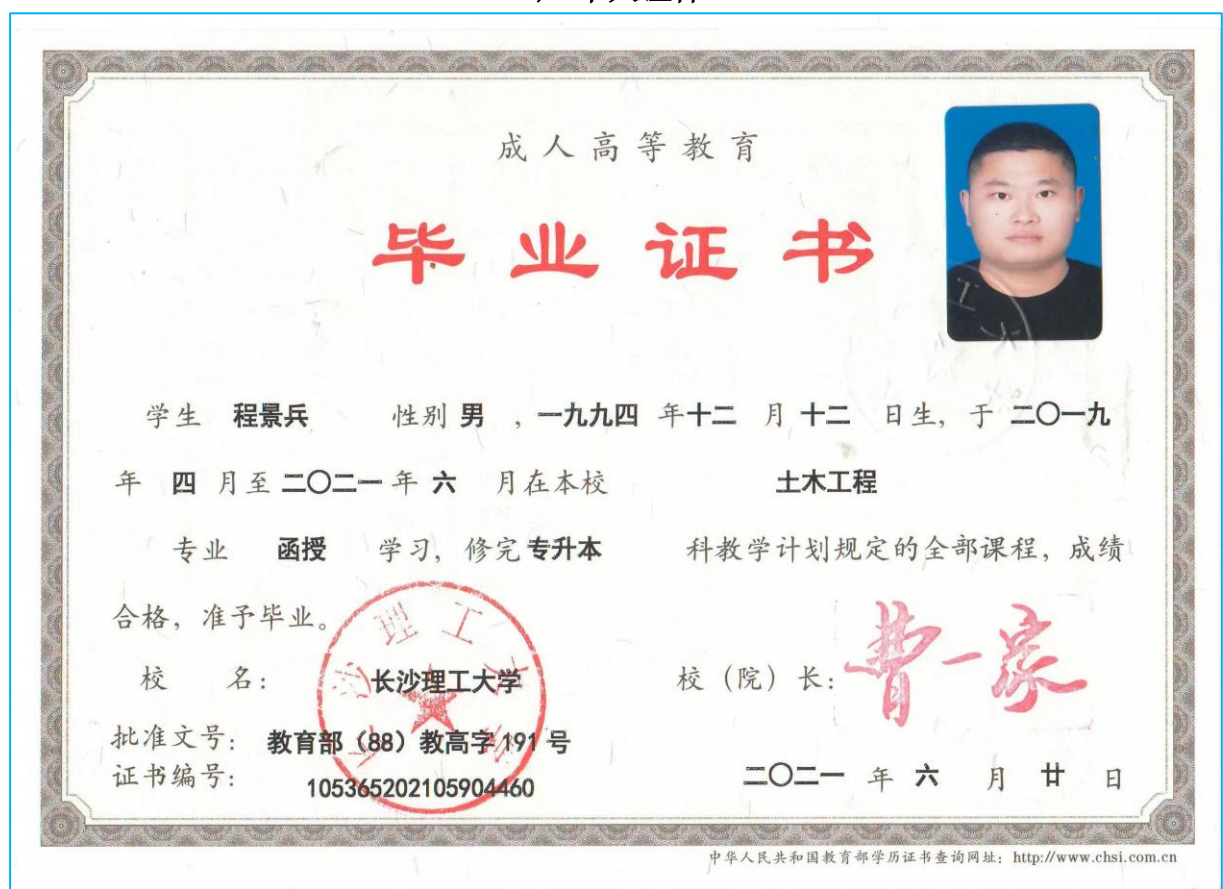 成人高等教育
毕业证书
学生 程景兵 性别 男 ，一九九四 年十二 月 十二 日生，于 二〇一九
年 四 月至 二〇二一 年 六 月在本校 土木工程
专业 函授 学习，修完 专升本 科教学计划规定的全部课程，成绩
合格，准予毕业。
校 名： 长沙理工大学 校（院）长：费一家
批准文号： 教育部（88）教高字 191 号
证书编号： 105365202105904460
二〇二一 年 六 月 廿 日
长沙理工大学
中华人民共和国教育部学历证书查询网址：http://www.chsi.com.cn